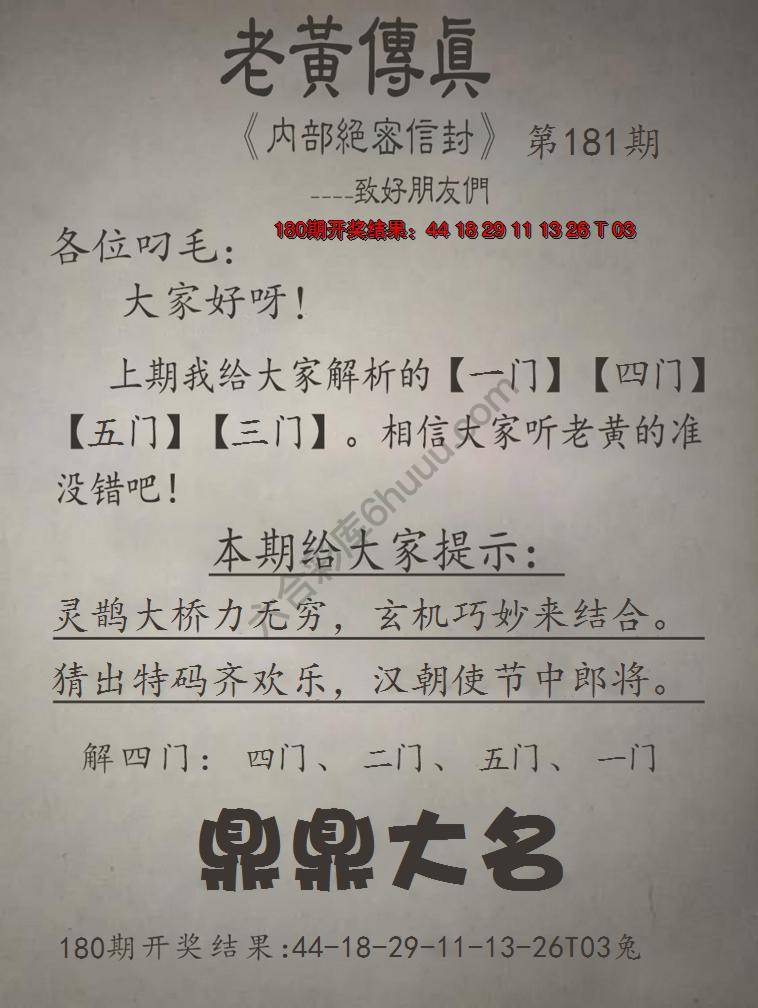 老黃傳眞
《内部絕密信封》 第181期
----致好朋友們
180期开奖结果：44 18 29 11 13 26 T 03
各位叼毛：
大家好呀！
上期我给大家解析的【一门】【四门】
【五门】【三门】。相信大家听老黄的准
没错吧！
六合彩库6huuu.com
本期给大家提示：
灵鹊大桥力无穷，玄机巧妙来结合。
猜出特码齐欢乐，汉朝使节中郎将。
解四门： 四门、 二门、 五门、 一门
鼎鼎大名
180期开奖结果:44-18-29-11-13-26T03兔